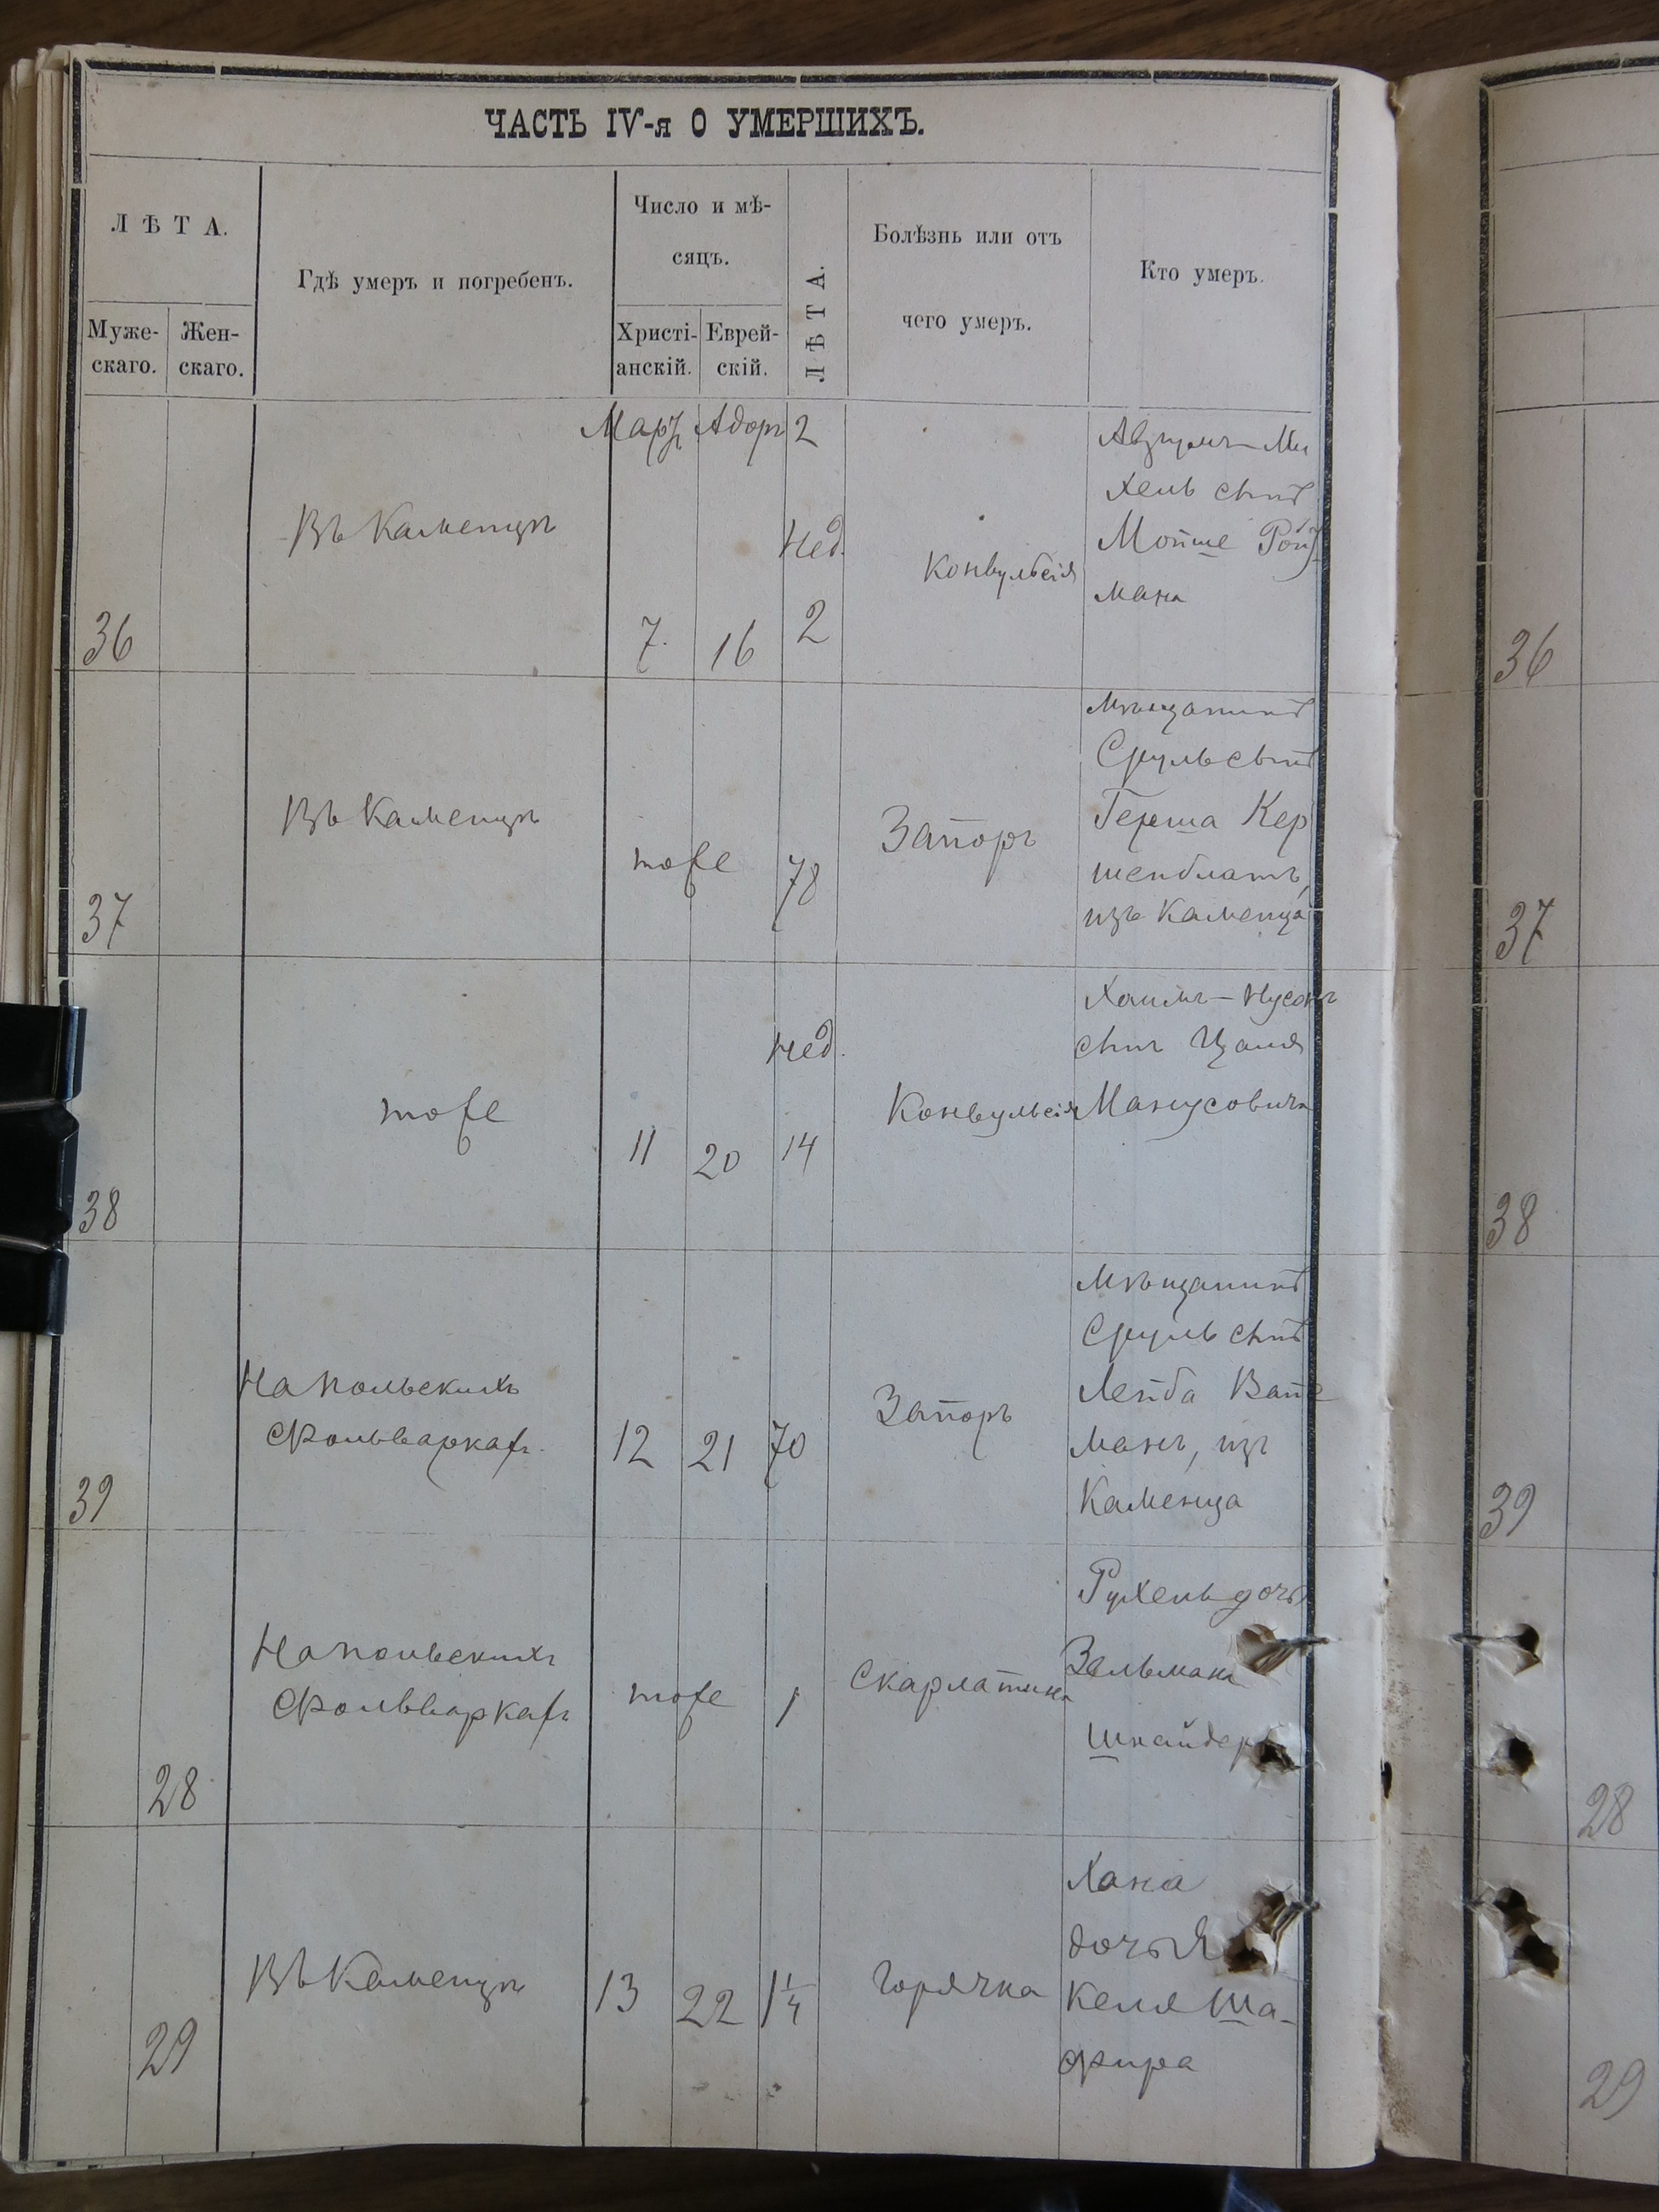 ЧАСТЬ IV-я О УМЕРШИХЪ.
ЛѢТА.
Муже-
скаго.
Жен-
скаго.
Гдѣ умеръ и погребенъ.
Число и мѣ-
сяцъ.
Христі-
анскій.
Еврей-
скій.
ЛѢТА.
Болѣзнь или отъ
чего умеръ.
Кто умеръ.
Мартъ Адоръ 2
36
Въ Каменцѣ
7. 16
Нед.
2
Конвульсія
Аврумъ-Ми
хель сынъ
Мойше Ройт
мана
37
Въ Каменцѣ
тоже
78
Запоръ
Мѣщанинъ
Сруль сынъ
Герша Кер
шенблатъ,
изъ Каменца
38
тоже
11 20
Нед.
14
Конвульсія
Хаимъ-Нусонъ
сынъ
Манусовича
39
На польскихъ
фольваркахъ.
12 21 70
Запоръ
Мѣщанинъ
Сруль сынъ
Лейба Вайс
манъ, изъ
Каменца
28
На польскихъ
фольваркахъ
тоже
1
Скарлатина
Рухель дочь
Зельмана
Шнайдер
29
Въ Каменцѣ
13 22 1¼
Горячка
Хана
дочь Я
келя Ша-
фира
36
37
38
39
28
29